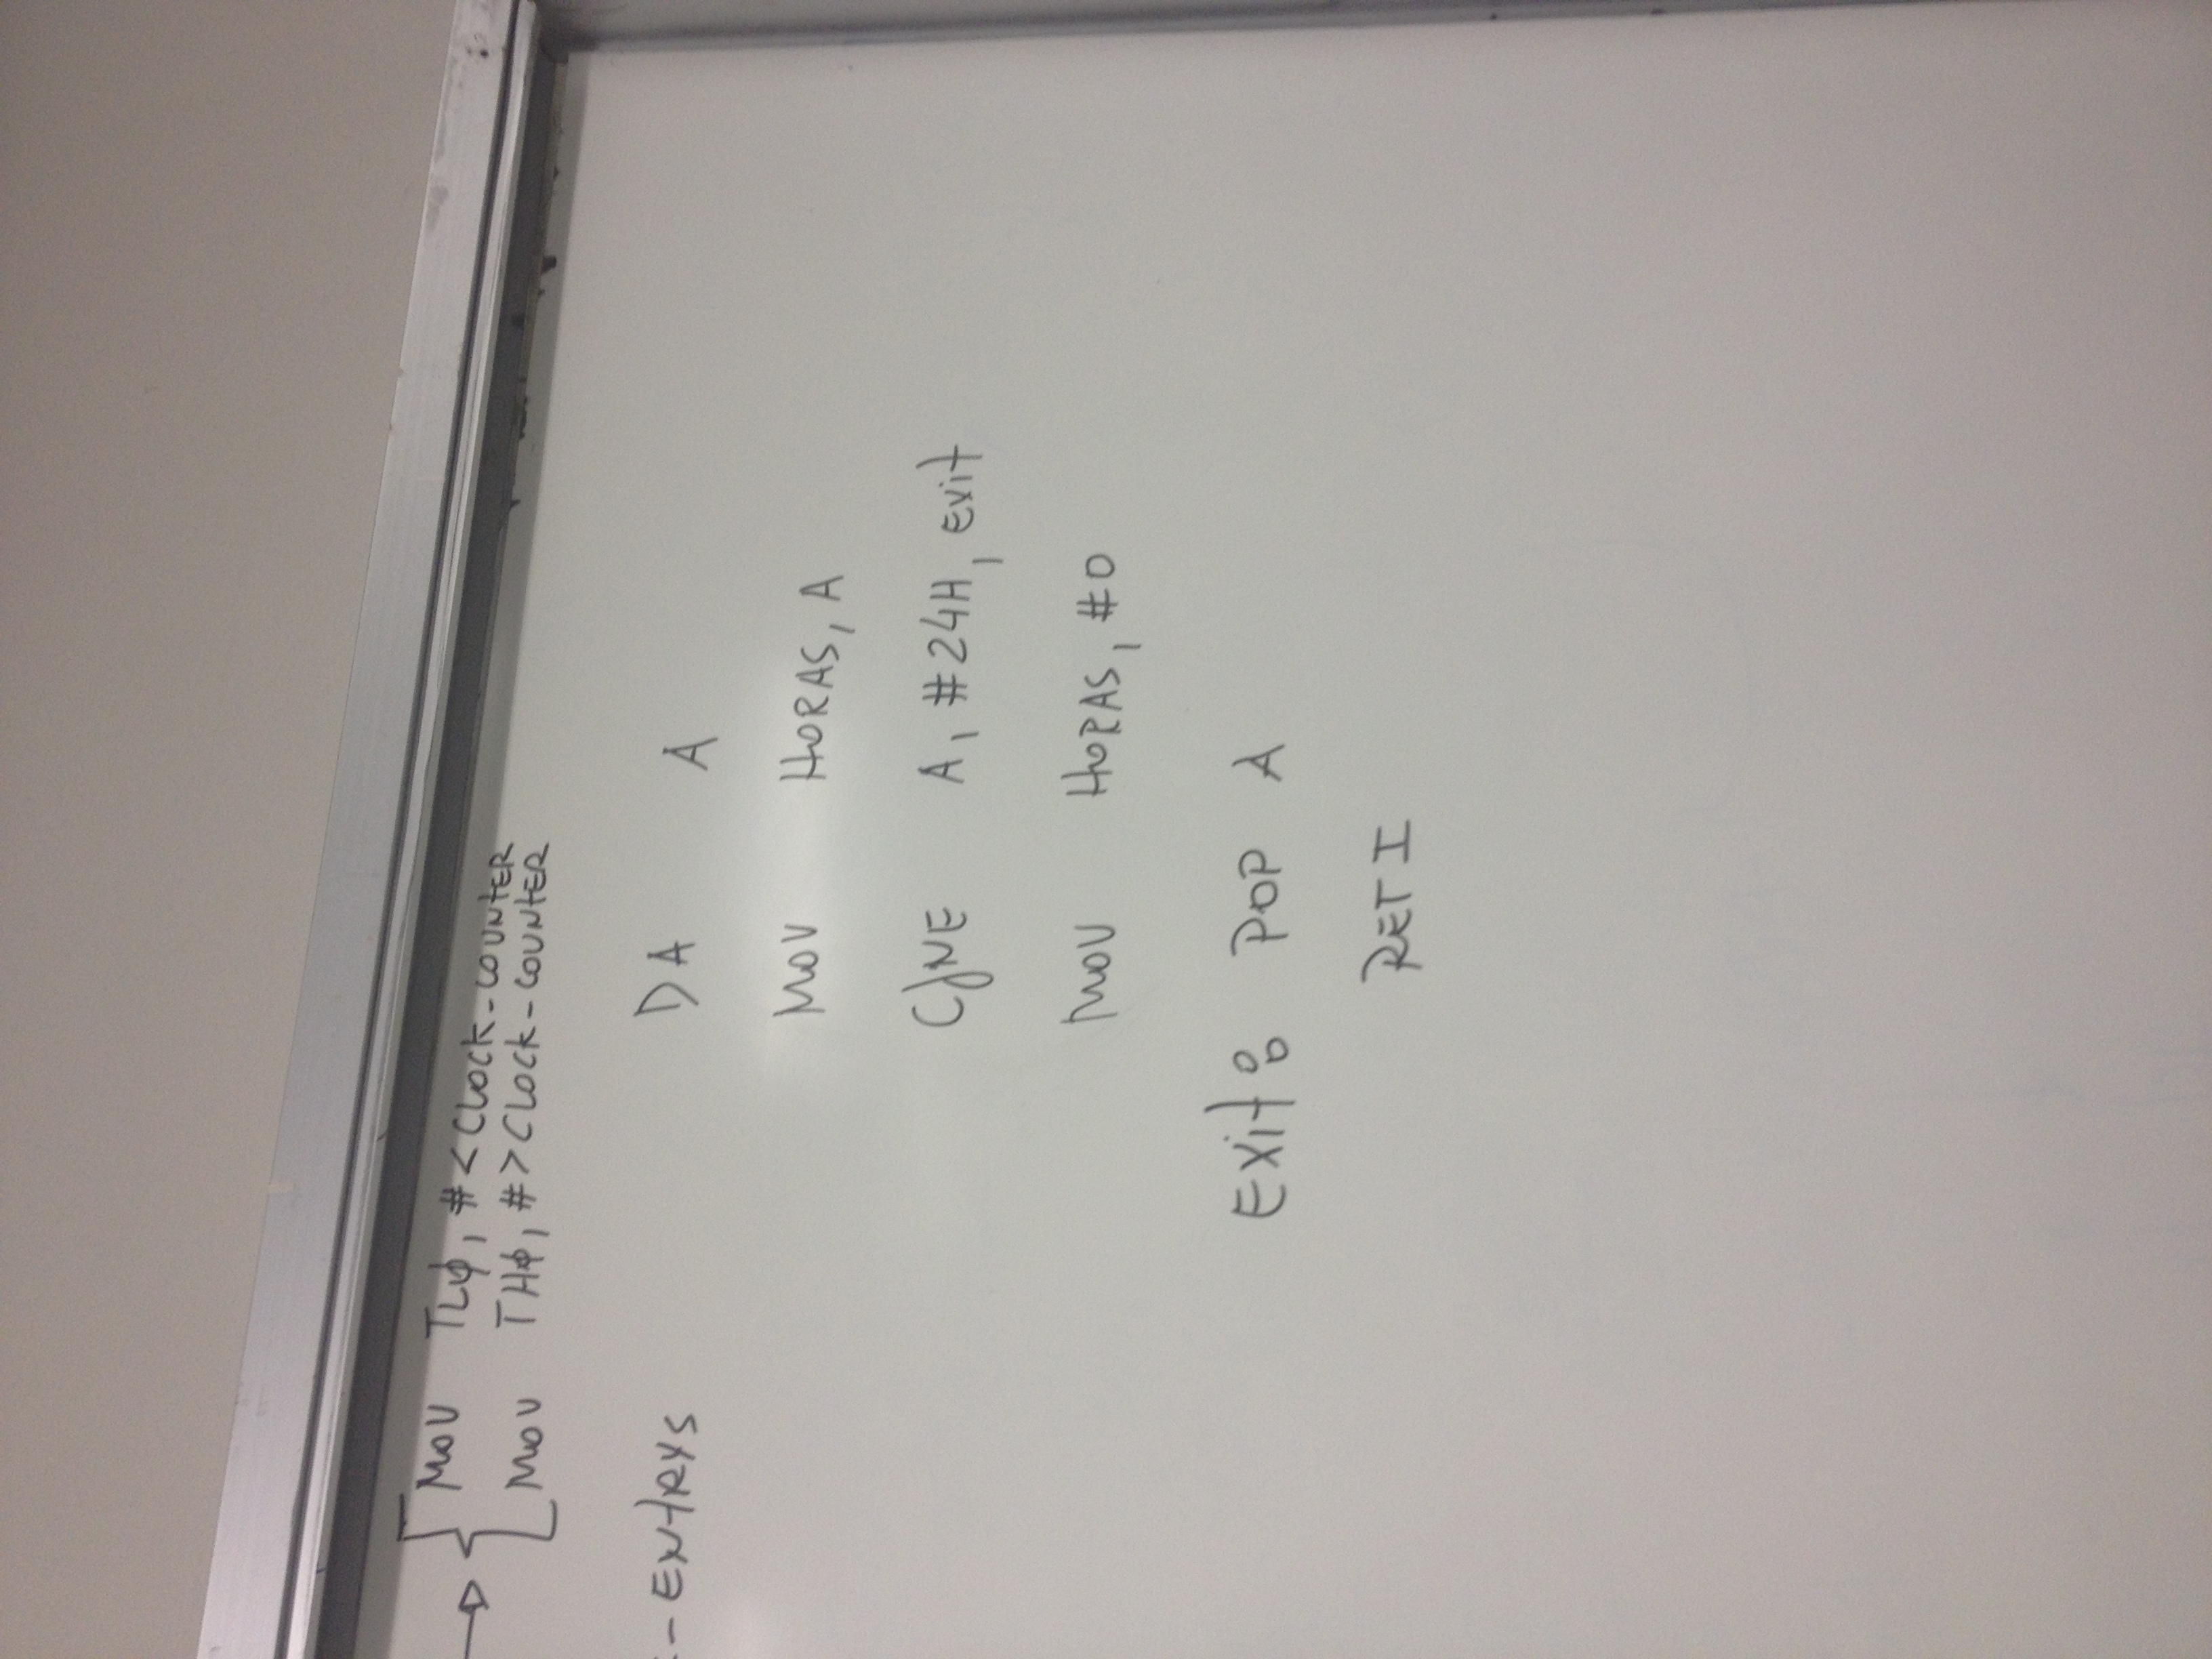 MOV TLØ, #<CLOCK-COUNTER
MOV THØ, #>CLOCK-COUNTER
-ENTRYS
DA A
MOV HORAS, A
CJNE A, #24H, EXIT
MOV HORAS, #0
EXIT: POP A
RETI